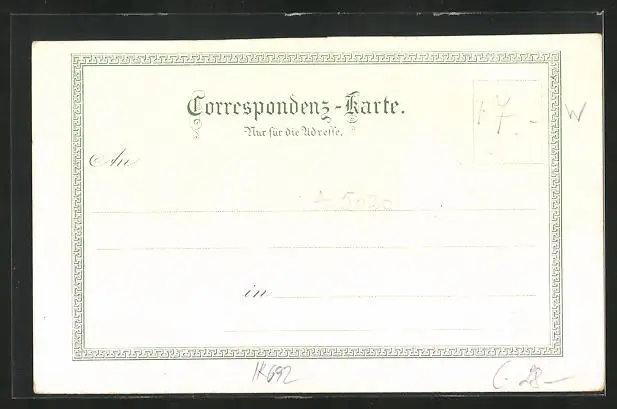 Correspondenz-Karte.
Nur für die Adresse.
7.-
W
An
in
K692
28-